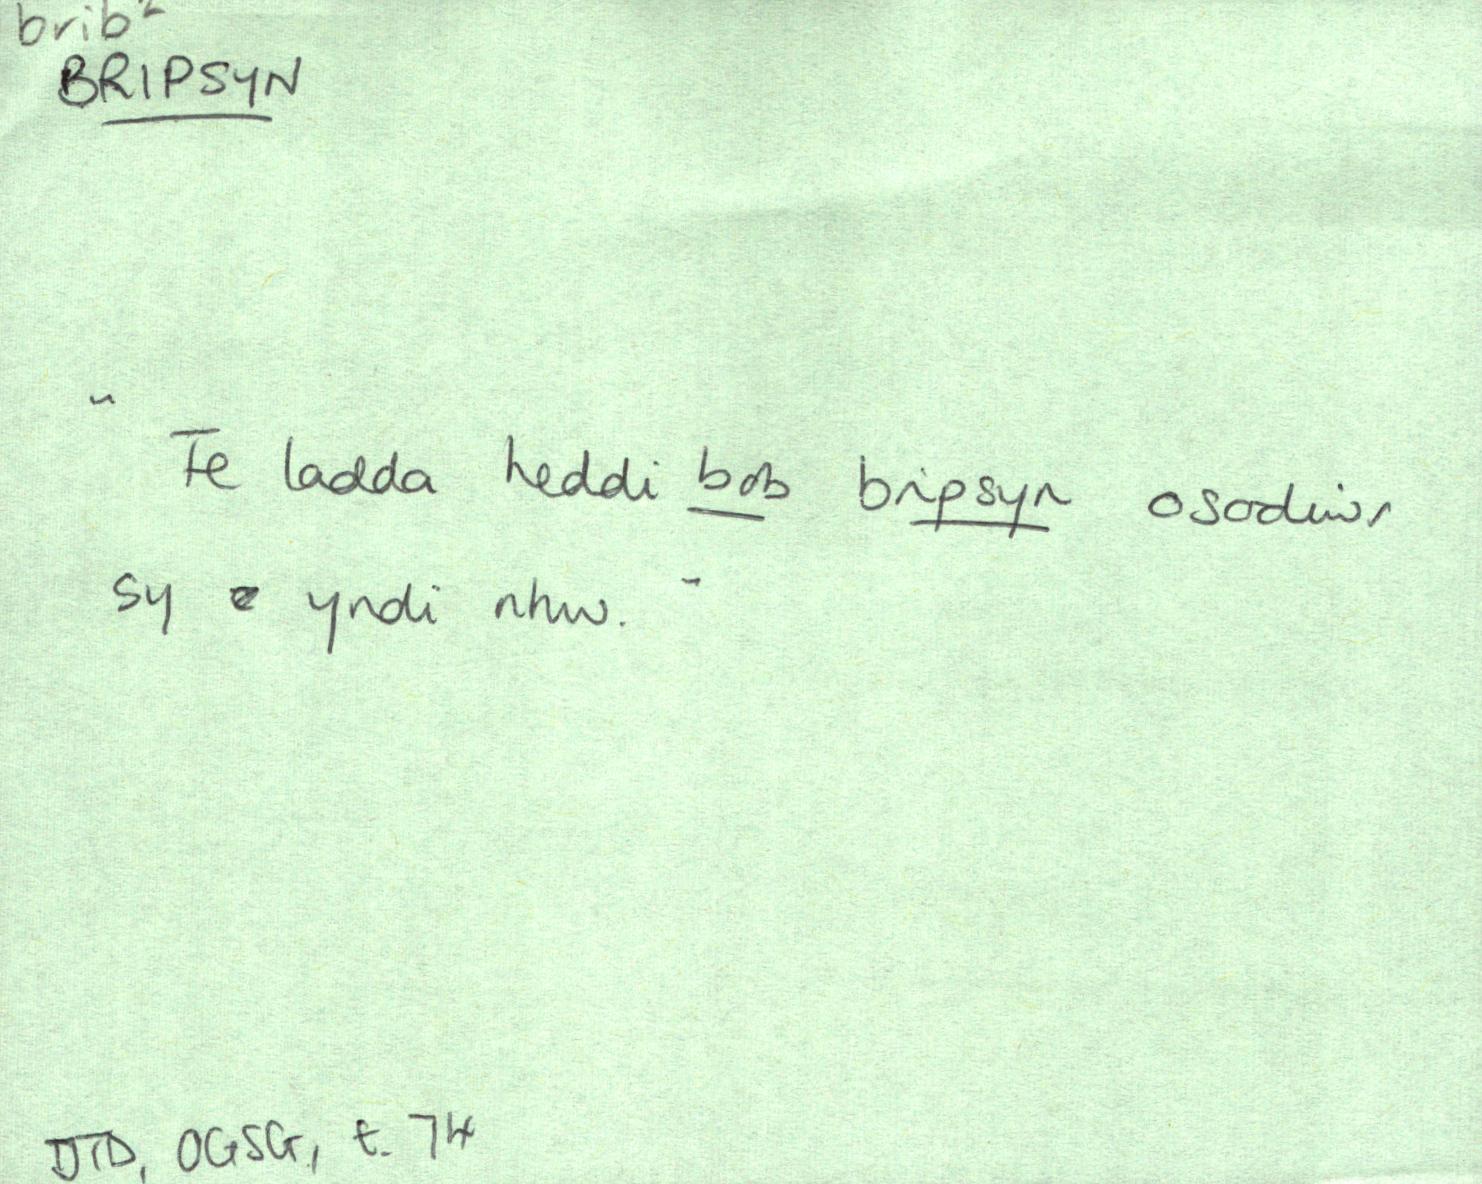 brib²
BRIPSYN
"Fe ladda heddi bob bripsyn osodiwr
sy yndi nhw."
DTD, OGSG, t. 74